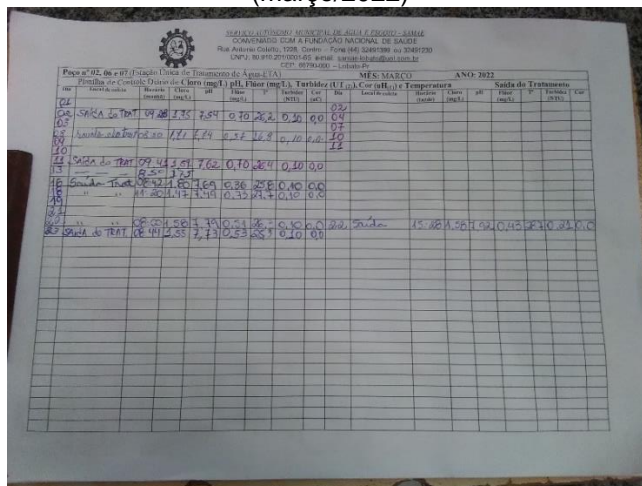 (março/2022)
SERVIÇO AUTÔNOMO MUNICIPAL DE ÁGUA E ESGOTO - SAMAE
CONVENIADO COM A FUNDAÇÃO NACIONAL DE SAÚDE
Rua Antonio Coletto, 1228, Centro - Fone (44) 32491388 ou 32491230
CNPJ: 80.910.201/0001-65 e-mail: samae-lobato@uol.com.br
CEP: 86790-000 - Lobato-Pr
Poço nº 02, 06 e 07 (Estação Única de Tratamento de Água-ETA) MÊS: MARÇO ANO: 2022
Planilha de Controle Diário de Cloro (mg/L) pH, Flúor (mg/L), Turbidez (UT), Cor (uH) e Temperatura Saída do Tratamento
Dia Local de coleta Horário Cloro (mg/L) pH Flúor (mg/L) Tº Turbidez (NTU) Cor (uC) Dia Local de coleta Horário Cloro (mg/L) pH Flúor (mg/L) Tº Turbidez (NTU) Cor
01 02
02 SAÍDA do TRAT 1,75 7,54 0,70 26,2 0,10 0,0 04
03 07
08 0,57 26,8 0,10 0,0 10
09 11
10
11 SAÍDA do TRAT 09:41 1,51 7,62 0,70 26,4 0,10 0,0
13
16 Saída Trat 08:42 1,80 7,69 0,36 25,8 0,10 0,0
18 " " 11:20 1,47 7,49 0,73 27,7 0,10 0,0
19
21
22 " " 08:00 1,58 7,79 0,51 0,10 0,0 22 Saída 15:28 1,58 7,92 0,43 0,0
SAÍDA do TRAT 08:44 1,55 7,73 0,53 25,3 0,10 0,0